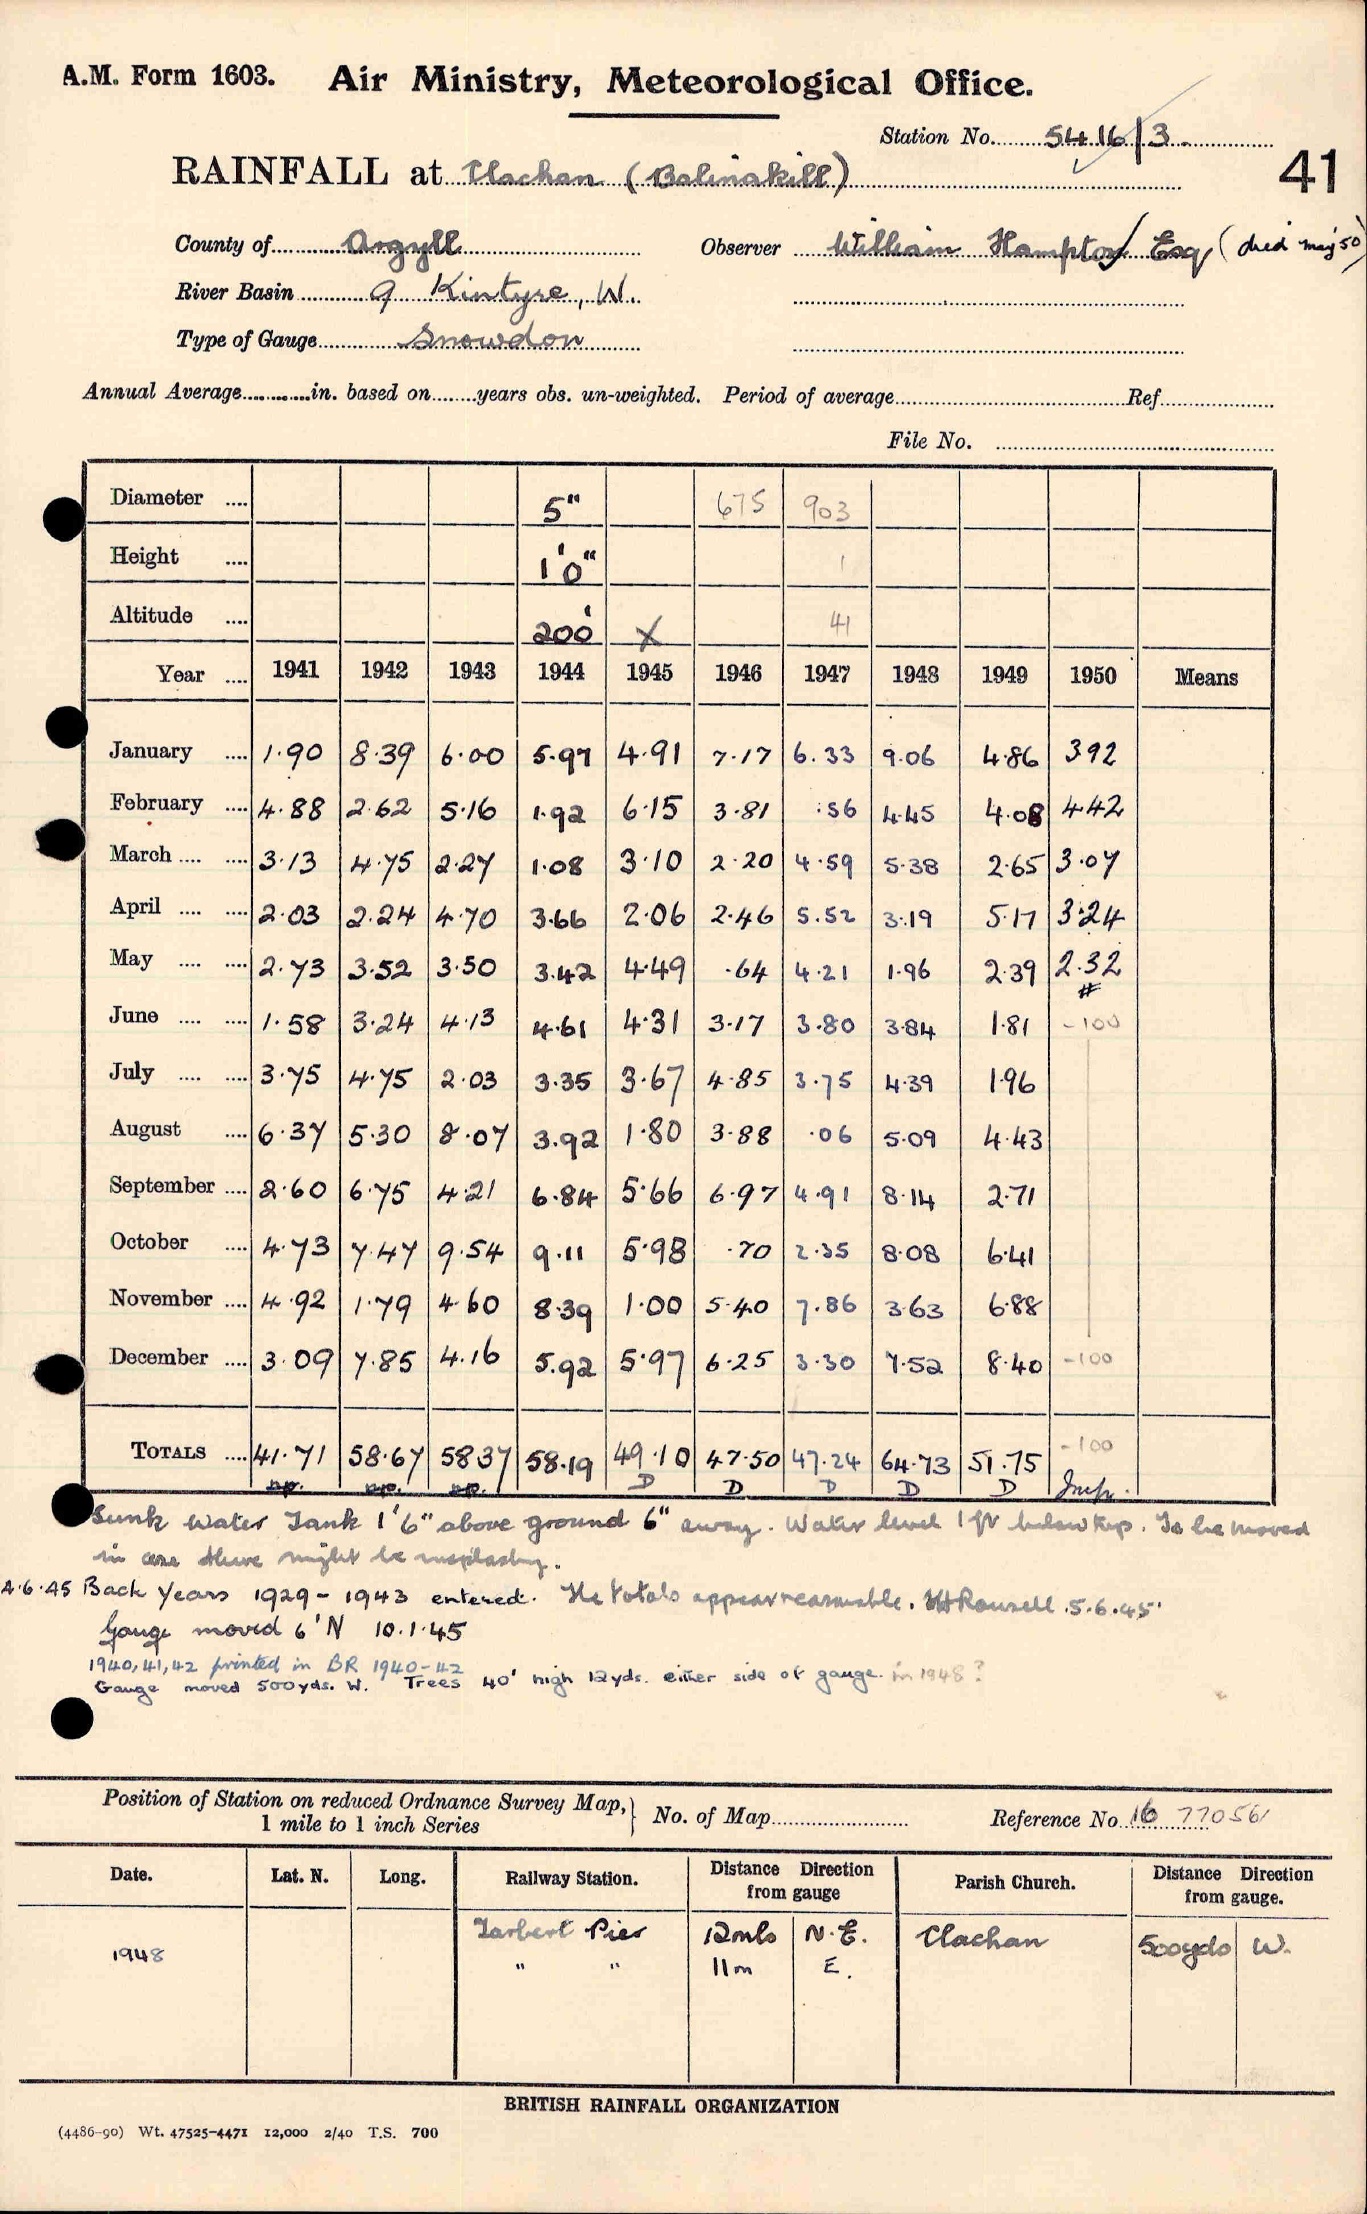 A.M. Form 1603. Air Ministry, Meteorological Office.
Station No. 5416/3.
RAINFALL at Clachan (Balinakill) 41
County of Argyll Observer William Hampton Esq (died may '50)
River Basin 9 Kintyre, W.
Type of Gauge Snowdon
Annual Average in. based on years obs. un-weighted. Period of average Ref
File No.
Diameter .... 5" 675 903
Height .... 1'0" 1
Altitude .... 200' X 41
Year .... 1941 1942 1943 1944 1945 1946 1947 1948 1949 1950 Means
January .... 1.90 8.39 6.00 5.97 4.91 7.17 6.33 9.06 4.86 392
February .... 4.88 2.62 5.16 1.92 6.15 3.81 .56 4.45 4.08 4.42
March .... .... 3.13 4.75 2.27 1.08 3.10 2.20 4.59 5.38 2.65 3.07
April .... .... 2.03 2.24 4.70 3.66 2.06 2.46 5.52 3.19 5.17 3.24
May .... .... 2.73 3.52 3.50 3.42 4.49 .64 4.21 1.96 2.39 2.32
#
June .... .... 1.58 3.24 4.13 4.61 4.31 3.17 3.80 3.84 1.81 -100
July .... .... 3.75 4.75 2.03 3.35 3.67 4.85 3.75 4.39 1.96
August .... 6.37 5.30 8.07 3.92 1.80 3.88 .06 5.09 4.43
September .... 2.60 6.75 4.21 6.84 5.66 6.97 4.91 8.14 2.71
October .... 4.73 7.47 9.54 9.11 5.98 .70 2.35 8.08 6.41
November .... 4.92 1.79 4.60 8.39 1.00 5.40 7.86 3.63 6.88
December .... 3.09 7.85 4.16 5.92 5.97 6.25 3.30 7.52 8.40 -100
TOTALS .... 41.71 58.67 58.37 58.19 49.10 47.50 47.24 64.73 51.75 -100
np. np. np. D D D D D Imp.
Sunk Water Tank 1'6" above ground 6" away. Water level 1 ft below top. To be moved
in case there might be insplashing.
4.6.45 Back Years 1929-1943 entered. The totals appear reasonable. 5.6.45
Gauge moved 6'N 10.1.45
1940,41,42 printed in BR 1940-42
Gauge moved 500yds. W. Trees 40' high 12yds. either side of gauge. in 1948?
Position of Station on reduced Ordnance Survey Map, 1 mile to 1 inch Series No. of Map Reference No 16 770561
Date. Lat. N. Long. Railway Station. Distance Direction from gauge Parish Church. Distance Direction from gauge.
Tarbert Pier 12mls N.E. Clachan 500yds W.
1948 " " 11m E.
BRITISH RAINFALL ORGANIZATION
(4486-90) Wt. 47525-4471 12,000 2/40 T.S. 700